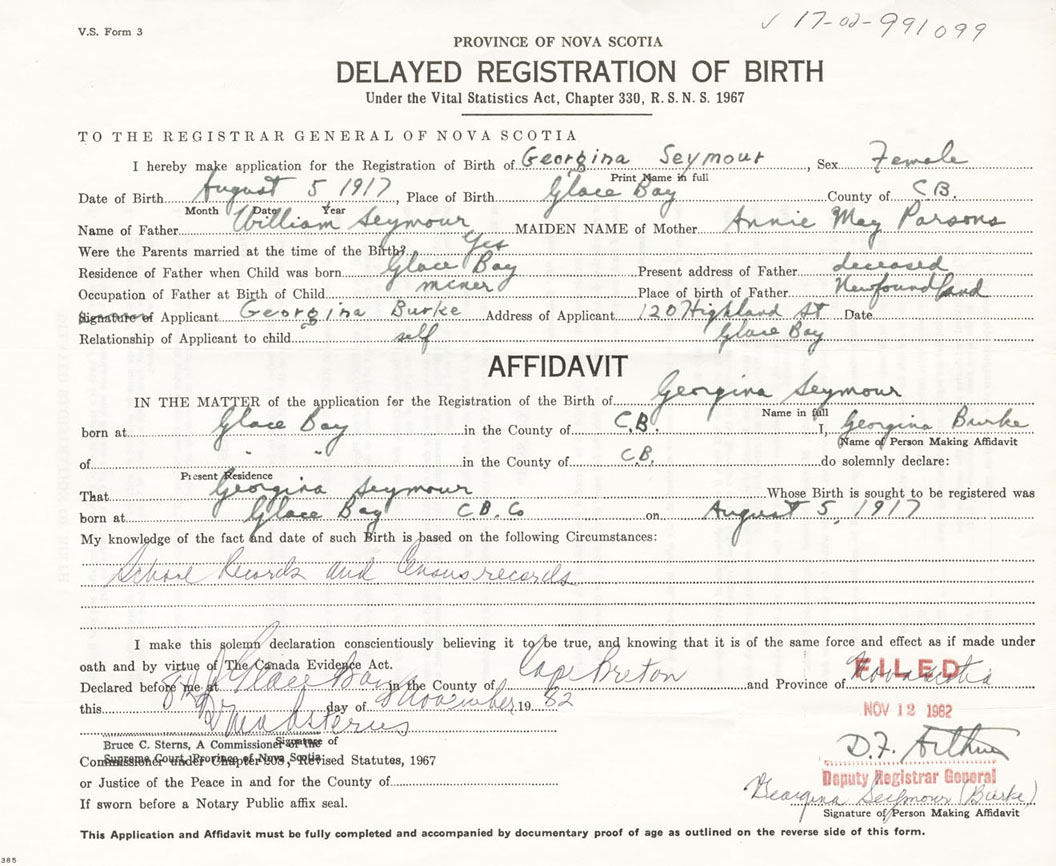 V.S. Form 3
✓ 17-02-991099
PROVINCE OF NOVA SCOTIA
DELAYED REGISTRATION OF BIRTH
Under the Vital Statistics Act, Chapter 330, R. S. N. S. 1967
TO THE REGISTRAR GENERAL OF NOVA SCOTIA
I hereby make application for the Registration of Birth of Georgina Seymour, Sex Female
Print Name in full
Date of Birth August 5 1917, Place of Birth Glace Bay County of C.B.
Month Date Year
Name of Father William Seymour MAIDEN NAME of Mother Annie May Parsons
Were the Parents married at the time of the Birth? Yes
Residence of Father when Child was born Glace Bay Present address of Father deceased
Occupation of Father at Birth of Child miner Place of birth of Father Newfoundland
Signature of Applicant Georgina Burke Address of Applicant 120 Highland St Date
Relationship of Applicant to child self Glace Bay
AFFIDAVIT
IN THE MATTER of the application for the Registration of the Birth of Georgina Seymour
Name in full
born at Glace Bay in the County of C.B. I, Georgina Burke
(Name of Person Making Affidavit
of " " in the County of C.B. do solemnly declare:
Present Residence
That Georgina Seymour Whose Birth is sought to be registered was
born at Glace Bay C.B. Co on August 5, 1917
My knowledge of the fact and date of such Birth is based on the following Circumstances:
School Records and Census records
I make this solemn declaration conscientiously believing it to be true, and knowing that it is of the same force and effect as if made under
oath and by virtue of The Canada Evidence Act.
Declared before me at Glace Bay in the County of Cape Breton and Province of Nova Scotia
FILED
this 8th day of November 19 82
NOV 12 1982
Signature of
Bruce C. Sterns, A Commissioner of the
Supreme Court, Province of Nova Scotia
Commissioner under Chapter 203, Revised Statutes, 1967
D.F. Arthur
Deputy Registrar General
or Justice of the Peace in and for the County of
Georgina Seymour (Burke)
If sworn before a Notary Public affix seal.
Signature of Person Making Affidavit
This Application and Affidavit must be fully completed and accompanied by documentary proof of age as outlined on the reverse side of this form.
385